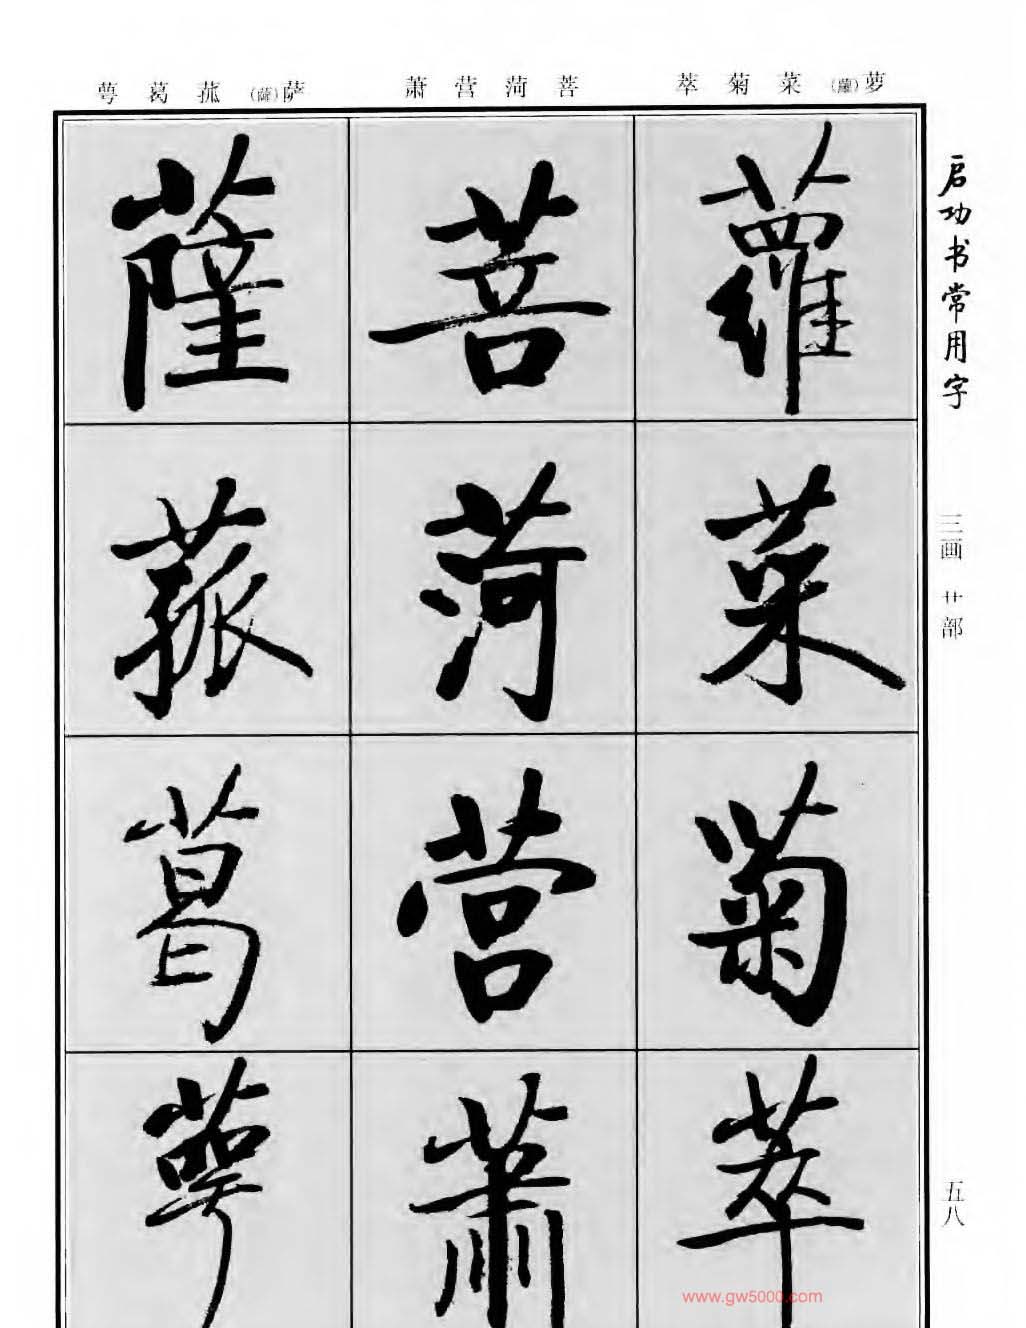 萼 葛 菰 (薩)萨 萧 营 菏 菩 萃 菊 菜 (蘿)萝
启功书常用字
三画 艹部
五八
蘿
菜
菊
萃
菩
菏
营
萧
薩
菰
葛
萼
www.gw5000.com